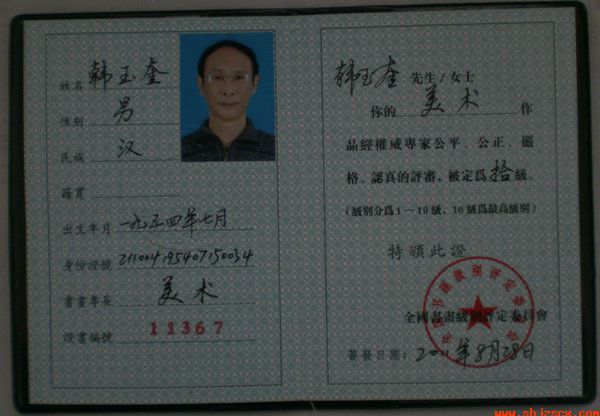 姓名 韩玉奎
性别 男
民族 汉
籍貫
出生年月 一九五四年七月
身份證號 211004195407150034
書畫專長 美术
證書編號 11367
韩玉奎 先生/女士
你的 美术 作
品經權威專家公平、公正、嚴
格、認真的評審，被定爲拾級。
（級別分爲1－10級，10級爲最高級別）
特頒此證
全國書畫級別評定委員會
簽發日期：2011年8月28日
www.sbjzscx.com